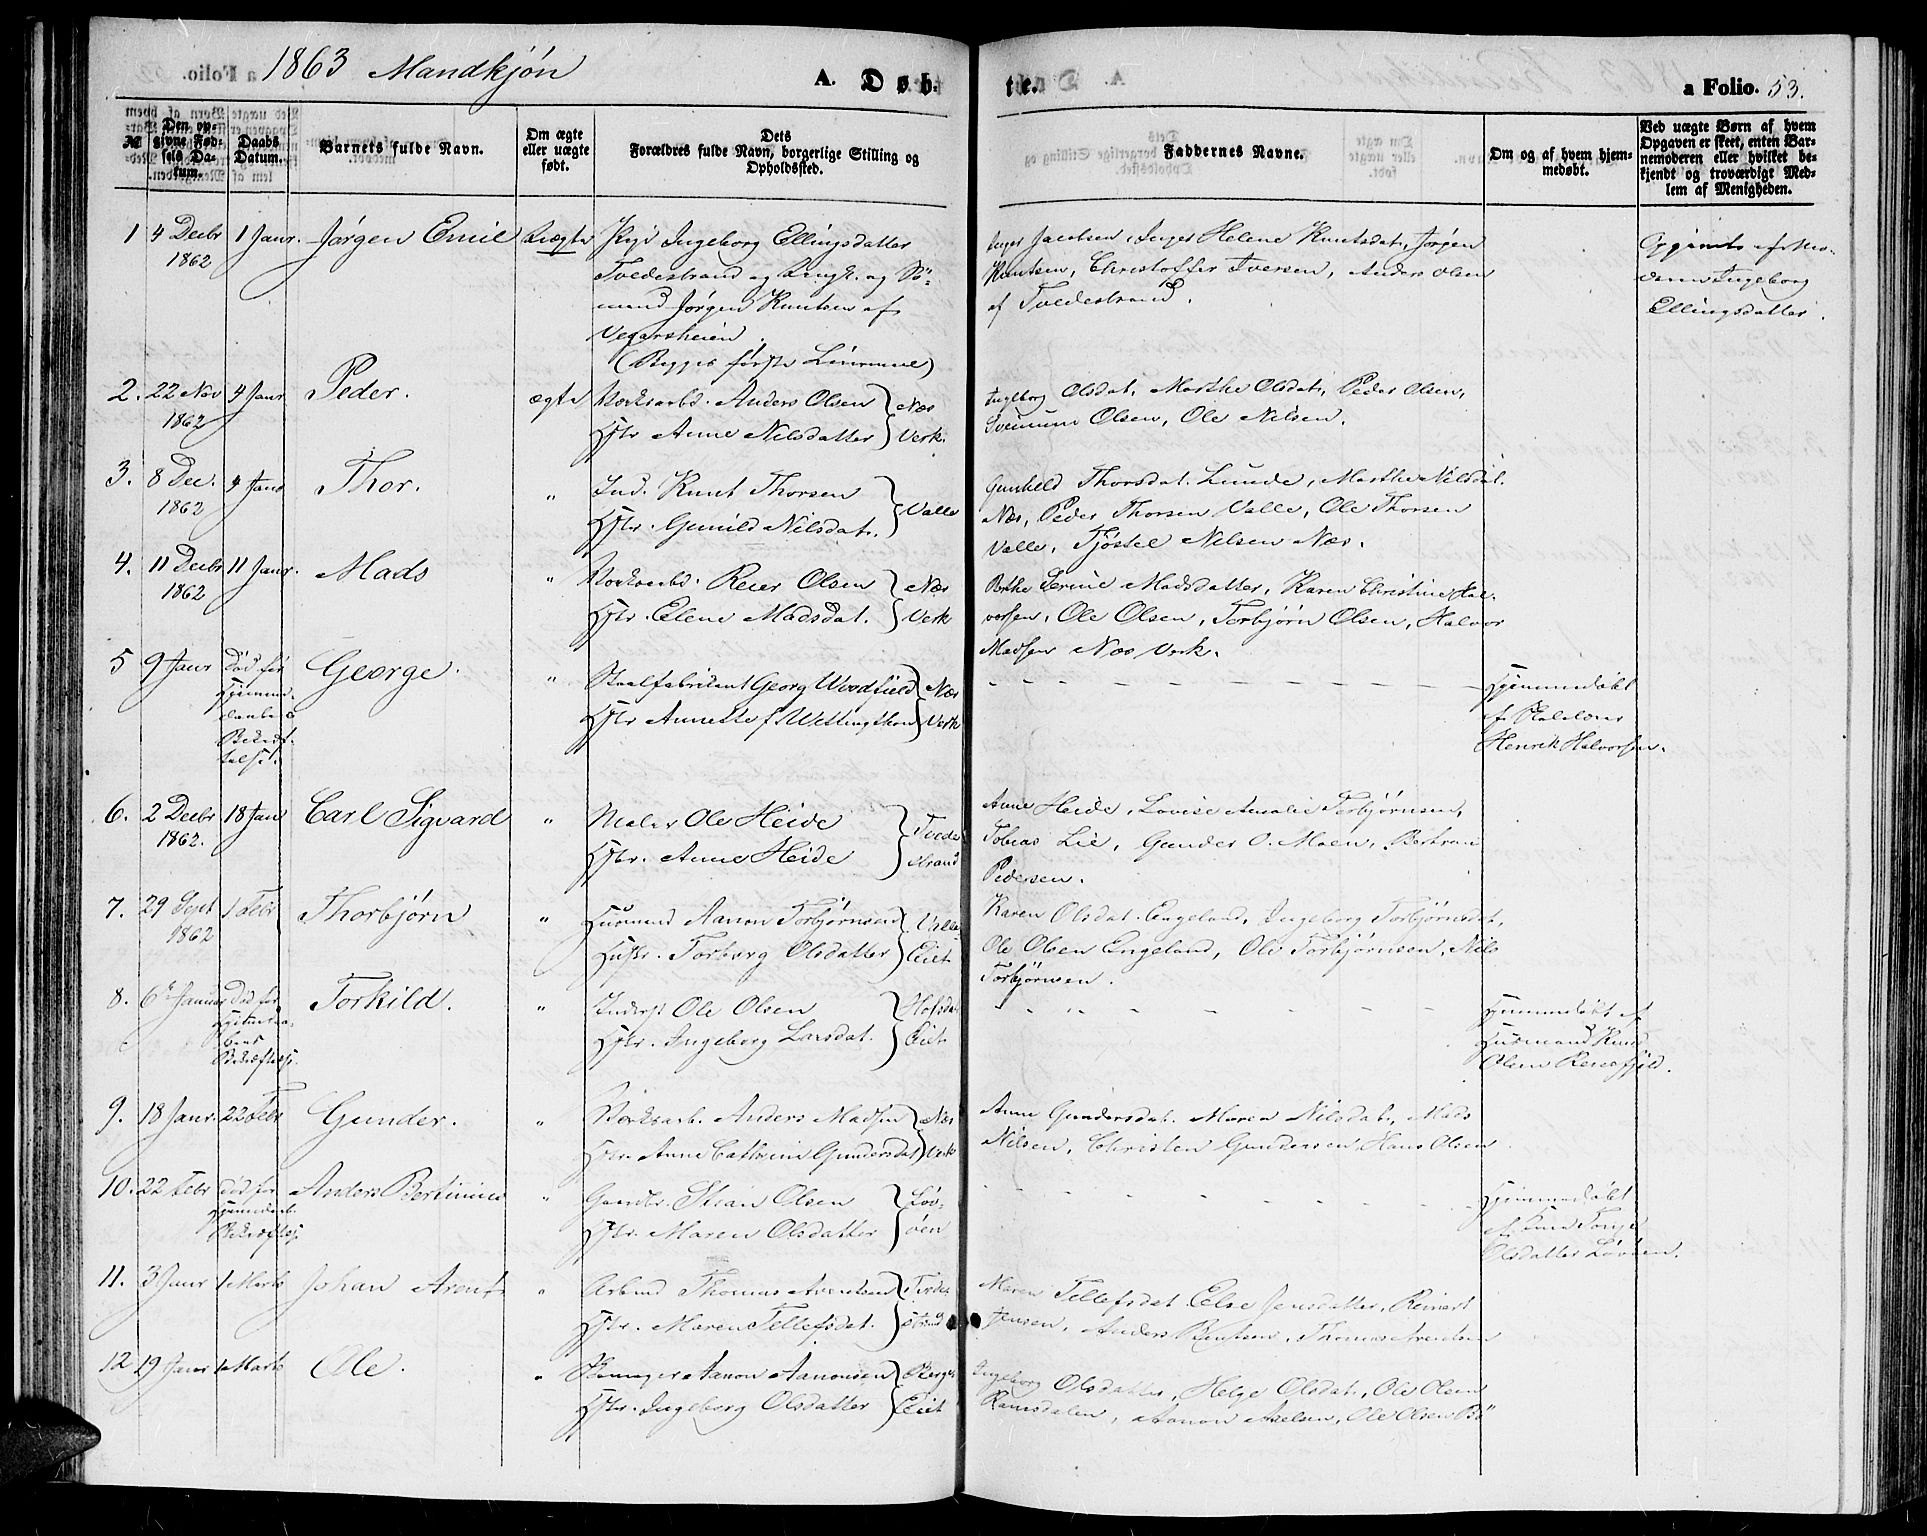 1863 Mandkjøn
A. Døb-
te.
a Folio. 53.
№
Den op-
givne Fød-
sels Da-
tum.
Daabs
Datum.
Barnets fulde Navn.
Om ægte
eller uægte
født.
Dets
Forældres fulde Navn, borgerlige Stilling og
Opholdssted.
Faddernes Navne.
Om og af hvem hjem-
medøbt.
Ved uægte Børn af hvem
Opgaven er skeet, enten Bar-
nemoderen eller hvilket be-
kjendt og troværdigt Med-
lem af Menigheden.
1 4 Decbr 1862
1 Janr.
Jørgen Emil
Uægte
Pige Ingeborg Ellingsdatter
Tvedestrand og Ungk. og Sö-
mand Jørgen Knutsen af
Vegarsheien.
(Begges første Leiermaal)
Inger Jacobsen, Inger Helene Knutsdat., Jørgen
Knutsen, Christoffer Iversen, Anders Olsen
af Tvedestrand.
Opgivet af Mo-
deren Ingeborg
Ellingsdatter.
2. 22 Nov 1862
4 Janr
Peder.
ægte
Verksarbd. Anders Olsen
Hstr Anne Nilsdatter
Næs
Verk.
Ingeborg Olsdat, Marthe Olsdat, Peder Olsen,
Olsen, Ole Nilsen.
3. 8 Dec. 1862
4 Janr
Thor.
"
Ind. Knut Thorsen
Hstr. Gunild Nilsdat.
Valle
Gunhild Thorsdat. Lunde, Marthe Nilsdat.
Næs, Peder Thorsen Valle, Ole Thorsen
Valle, Tjöstel Nilsen Næs.
4. 11 Decbr 1862
11 Janr.
Mads
"
Verksarbd. Reier Olsen
Hstr. Elene Madsdat.
Næs
Verk
Berthe Serine Madsdatter, Karen Christine Hal-
vorsen, Ole Olsen, Torbjørn Olsen, Halvor
Madsen Næs Verk.
5 9 Janr
Død før
Hjemme-
daabens
Bekræf-
telse.
George.
"
Staalfabrikant Georg Woodfield
Hstr Annette f Wettingsthon
Næs
Verk
Hjemmedøbt
af
Henrik Halvorsen.
6. 2 Decbr 1862.
18 Jan
Carl Sigvard
"
Maler Ole Heide
Hstr. Anne Heide
Tvede
strand
Anne Heide, Lovise Amalie Torbjørnsen,
Tobias Lie, Gunder O. Moen, Bertram
Pedersen.
7. 29 Sept 1862
1 Febr
Thorbjörn
"
Husmand Aanon Torbjørnsen
Hustr. Torborg Olsdatter
Valle
Eiet
Karen Olsdat. Engeland, Ingeborg Torbjørnsdat,
Ole Olsen Engeland, Ole Torbjørnsen, Nils
Torbjörnsen.
8. 6te Januar
Død før
Hjemmeda-
bens
Bekræftelse.
Torkild.
"
Inderst Ole Olsen
Hstr. Ingeborg Larsdat.
Hofsdal
Eiet
Hjemmedøbt af
Husmand Knud
Olsen
9. 18 Janr.
22 Febr
Gunder.
"
Verksarb. Anders Madsen
Hstr. Anne Cathrine Gundersdat
Næs
Verk
Anne Gundersdat. Maren Nilsdat, Mads
Nilsen, Christen Gundersen, Hans Olsen
10. 22 Febr
død før
Hjemmedaab.
Bekræftelse
Anders Bertinius
"
Gaardbr. Stian Olsen
Hstr. Maren Olsdatter
Löv-
öen
Hjemmedøbt
af
Olsdatter Løvöen.
11. 3 Janr
1 Marts
Johan Arent
"
Arbmd Thomas Arentsen
Hstr. Maren Tellefsdat.
Tvede
strand
Maren Tellefsdat. Else Jensdatter, Reinert
Jensen, Anders Bentsen, Thomas Arentsen
12 19 Janr
1 Marts
Ole.
"
Aanon Aanonsen
Hstr. Ingeborg Olsdatter
Berge
Eiet
Ingeborg Olsdatter, Helge Olsdat, Ole Olsen
Ramsdalen, Aanon Axelsen, Ole Olsen Bö